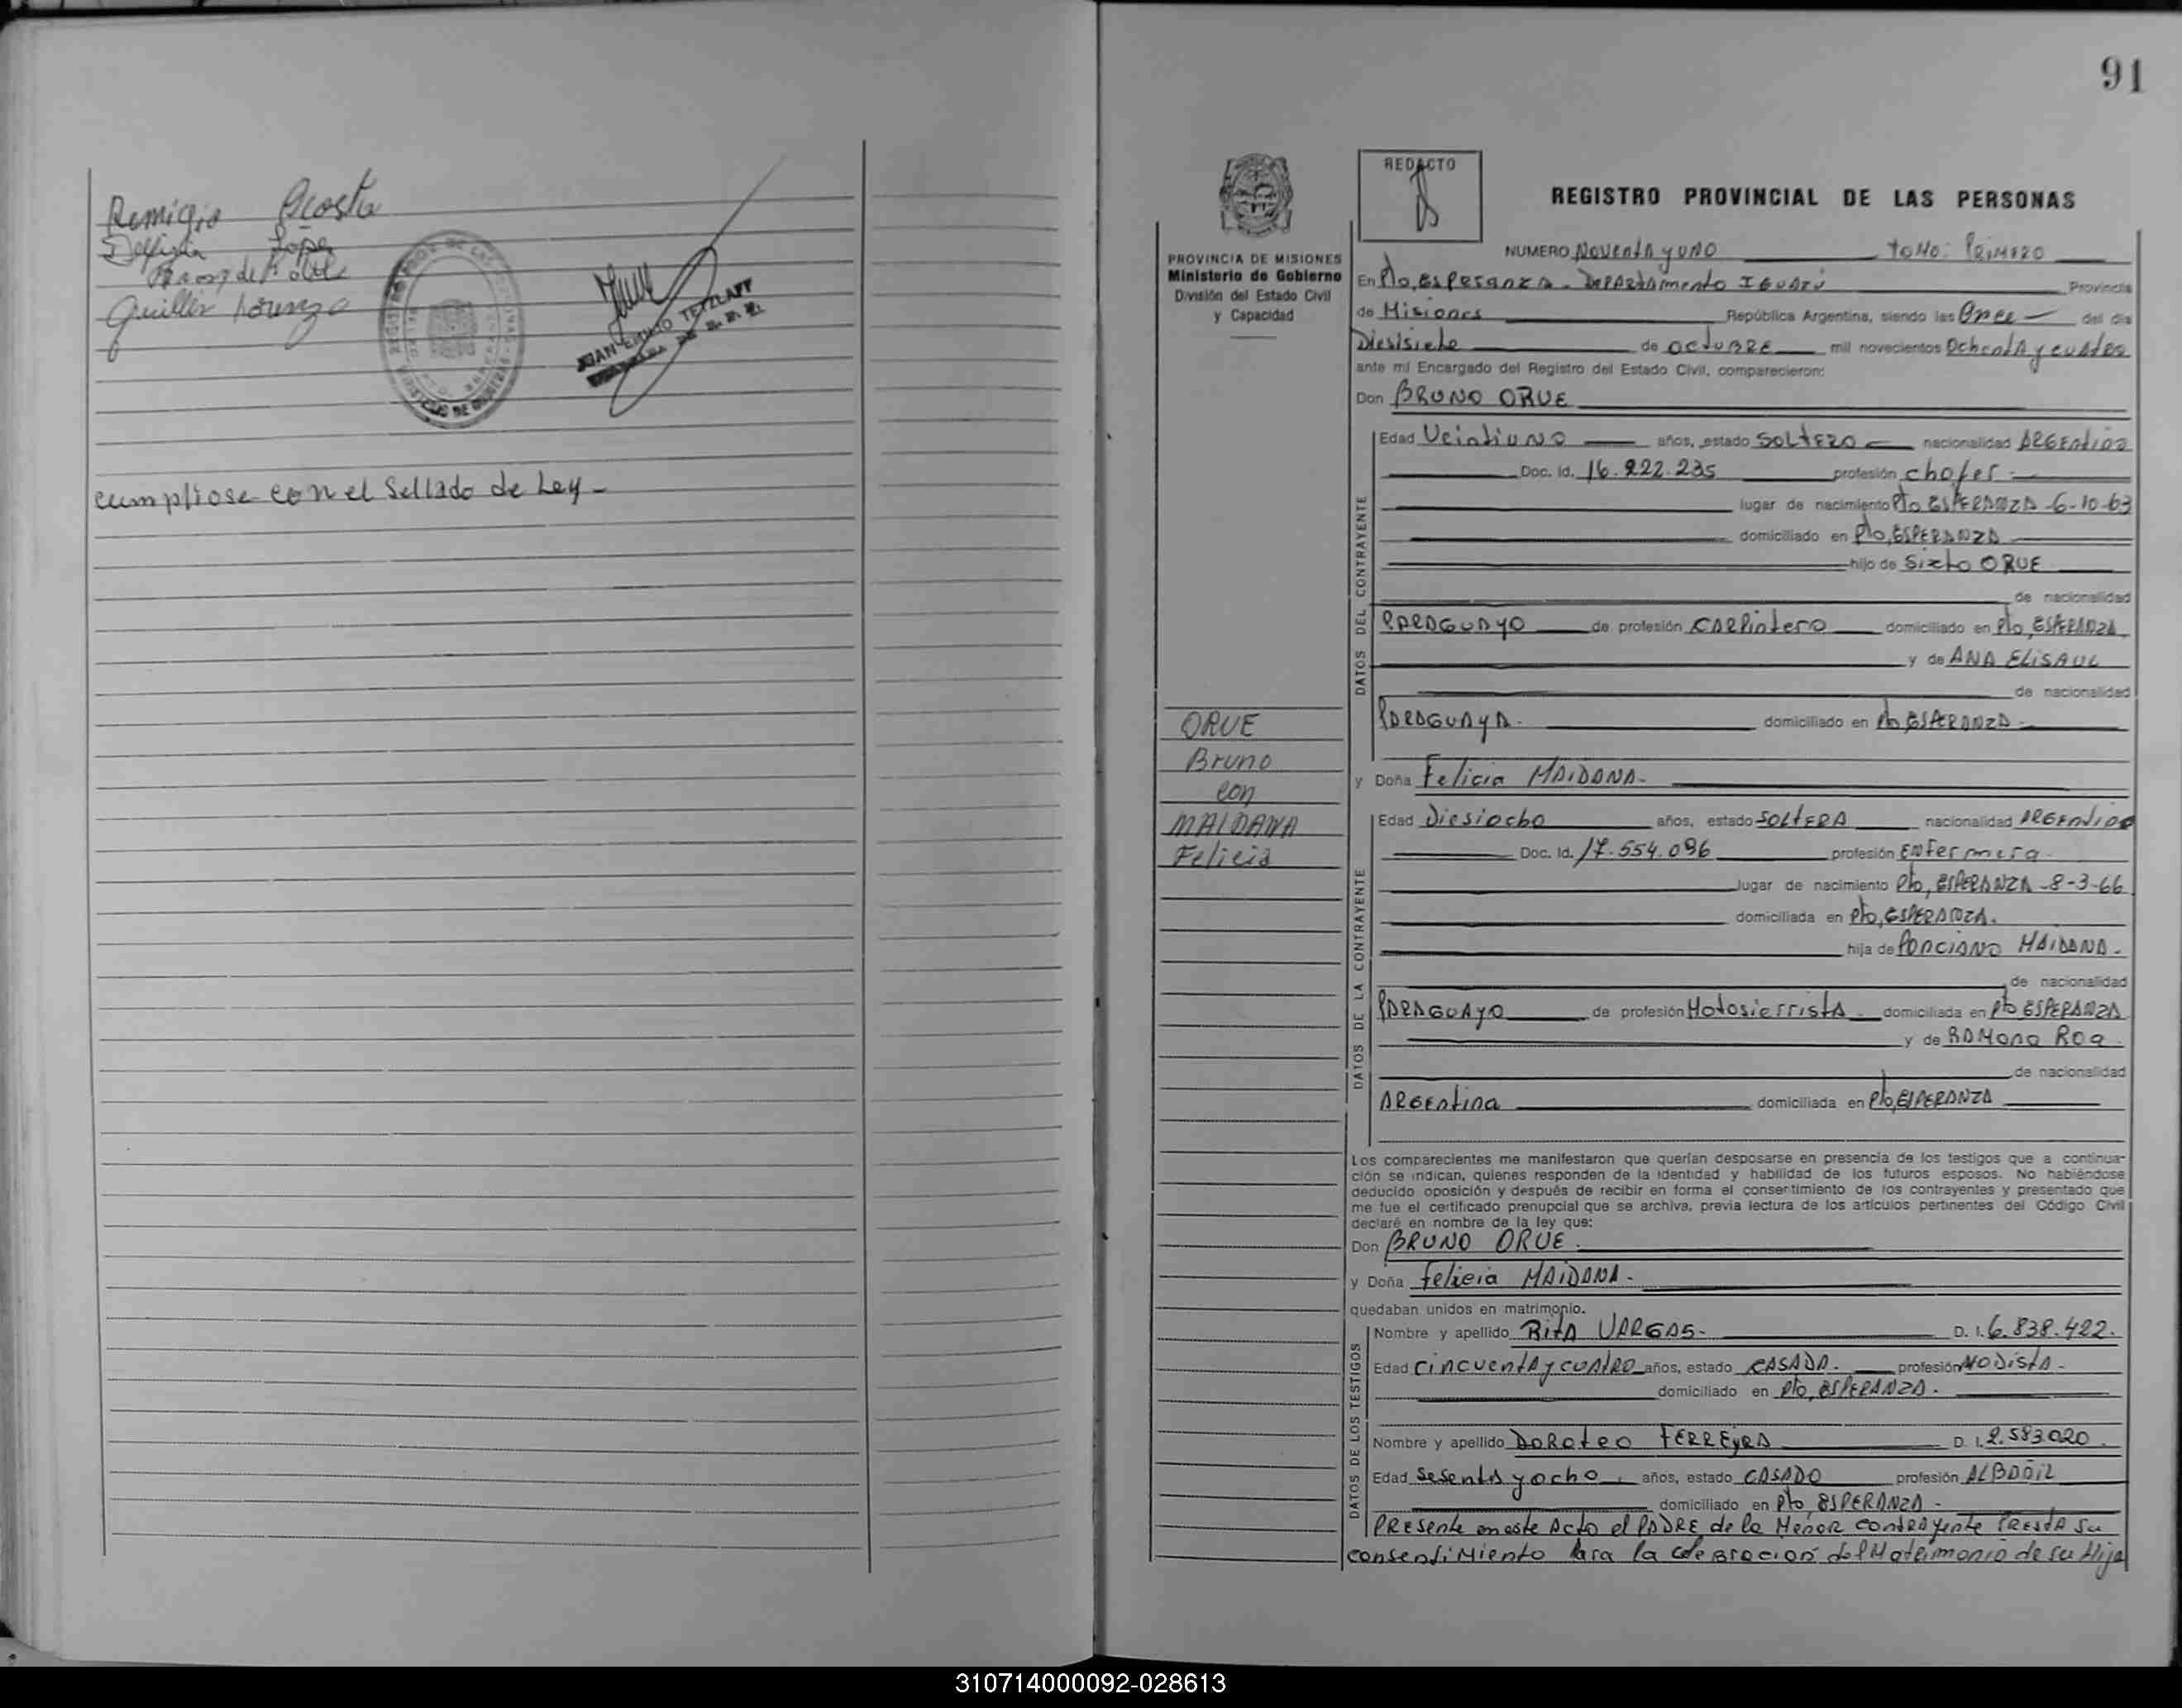 Remigio Acosta
Delfina López
Guillén Lorenzo
JUAN EMILIO TETZLAFF
cumpliose con el Sellado de Ley -
91
REDACTO
REGISTRO PROVINCIAL DE LAS PERSONAS
NUMERO Noventa y uno Tomo: Primero
PROVINCIA DE MISIONES
Ministerio de Gobierno
División del Estado Civil
y Capacidad
En Pto, Esperanza - Departamento Iguazú Provincia
de Misiones República Argentina, siendo las Once del día
Diesisiete de octubre mil novecientos Ochenta y cuatro
ante mí Encargado del Registro del Estado Civil, comparecieron:
Don BRUNO ORUE
DATOS DEL CONTRAYENTE
Edad Veintiuno años, estado SOLTERO nacionalidad Argentina
Doc. Id. 16.222.235 profesión chofer
lugar de nacimiento Pto ESPERANZA -6-10-63
domiciliado en Pto, ESPERANZA
hijo de Sixto ORUE
de nacionalidad
PARAGUAYO de profesión CARPintero domiciliado en Pto, ESPERANZA
y de ANA ELISAUL
de nacionalidad
PARAGUAYA. domiciliado en Pto, ESPERANZA
ORUE
Bruno
con
MAIDANA
Felicia
y Doña Felicia MAIDANA-
DATOS DE LA CONTRAYENTE
Edad Diesiocho años, estado SOLTERA nacionalidad ARGENtina
Doc. Id. 17.554.096 profesión ENFermera
lugar de nacimiento Pto, ESPERANZA -8-3-66
domiciliada en Pto, ESPERANZA.
hija de PONCIANO MAIDANA.
de nacionalidad
PARAGUAYO de profesión Motosierrista domiciliada en Pto ESPERANZA
y de RAMona ROA
de nacionalidad
ARGENtina domiciliada en Pto, ESPERANZA
Los comparecientes me manifestaron que querían desposarse en presencia de los testigos que a continua-
ción se indican, quienes responden de la identidad y habilidad de los futuros esposos. No habiéndose
deducido oposición y después de recibir en forma el consentimiento de los contrayentes y presentado que
me fue el certificado prenupcial que se archiva, previa lectura de los artículos pertinentes del Código Civil
declaré en nombre de la ley que:
Don BRUNO ORUE.
y Doña Felicia MAIDANA.
quedaban unidos en matrimonio.
DATOS DE LOS TESTIGOS
Nombre y apellido Rita VARGAS- D. I. 6.838.422.
Edad cincuenta y cuatro años, estado CASADA. profesión MODistA.
domiciliado en Pto, ESPERANZA.
Nombre y apellido DOROteo FERREyRA D. I. 2.583020.
Edad Sesenta y ocho años, estado CASADO profesión ALBAÑIL
domiciliado en Pto ESPERANZA-
PResente en este Acto el PADRE de la Menor contrayente PRESTA su
consentiMiento para la celebracion del Matrimonio de su Hija
310714000092-028613